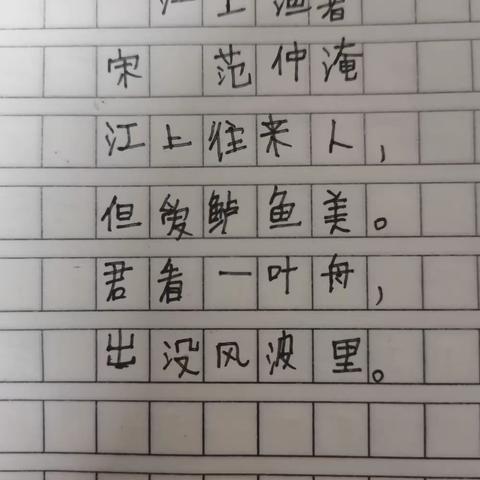 江上渔者
宋 范仲淹
江上往来人,
但爱鲈鱼美。
君看一叶舟,
出没风波里。